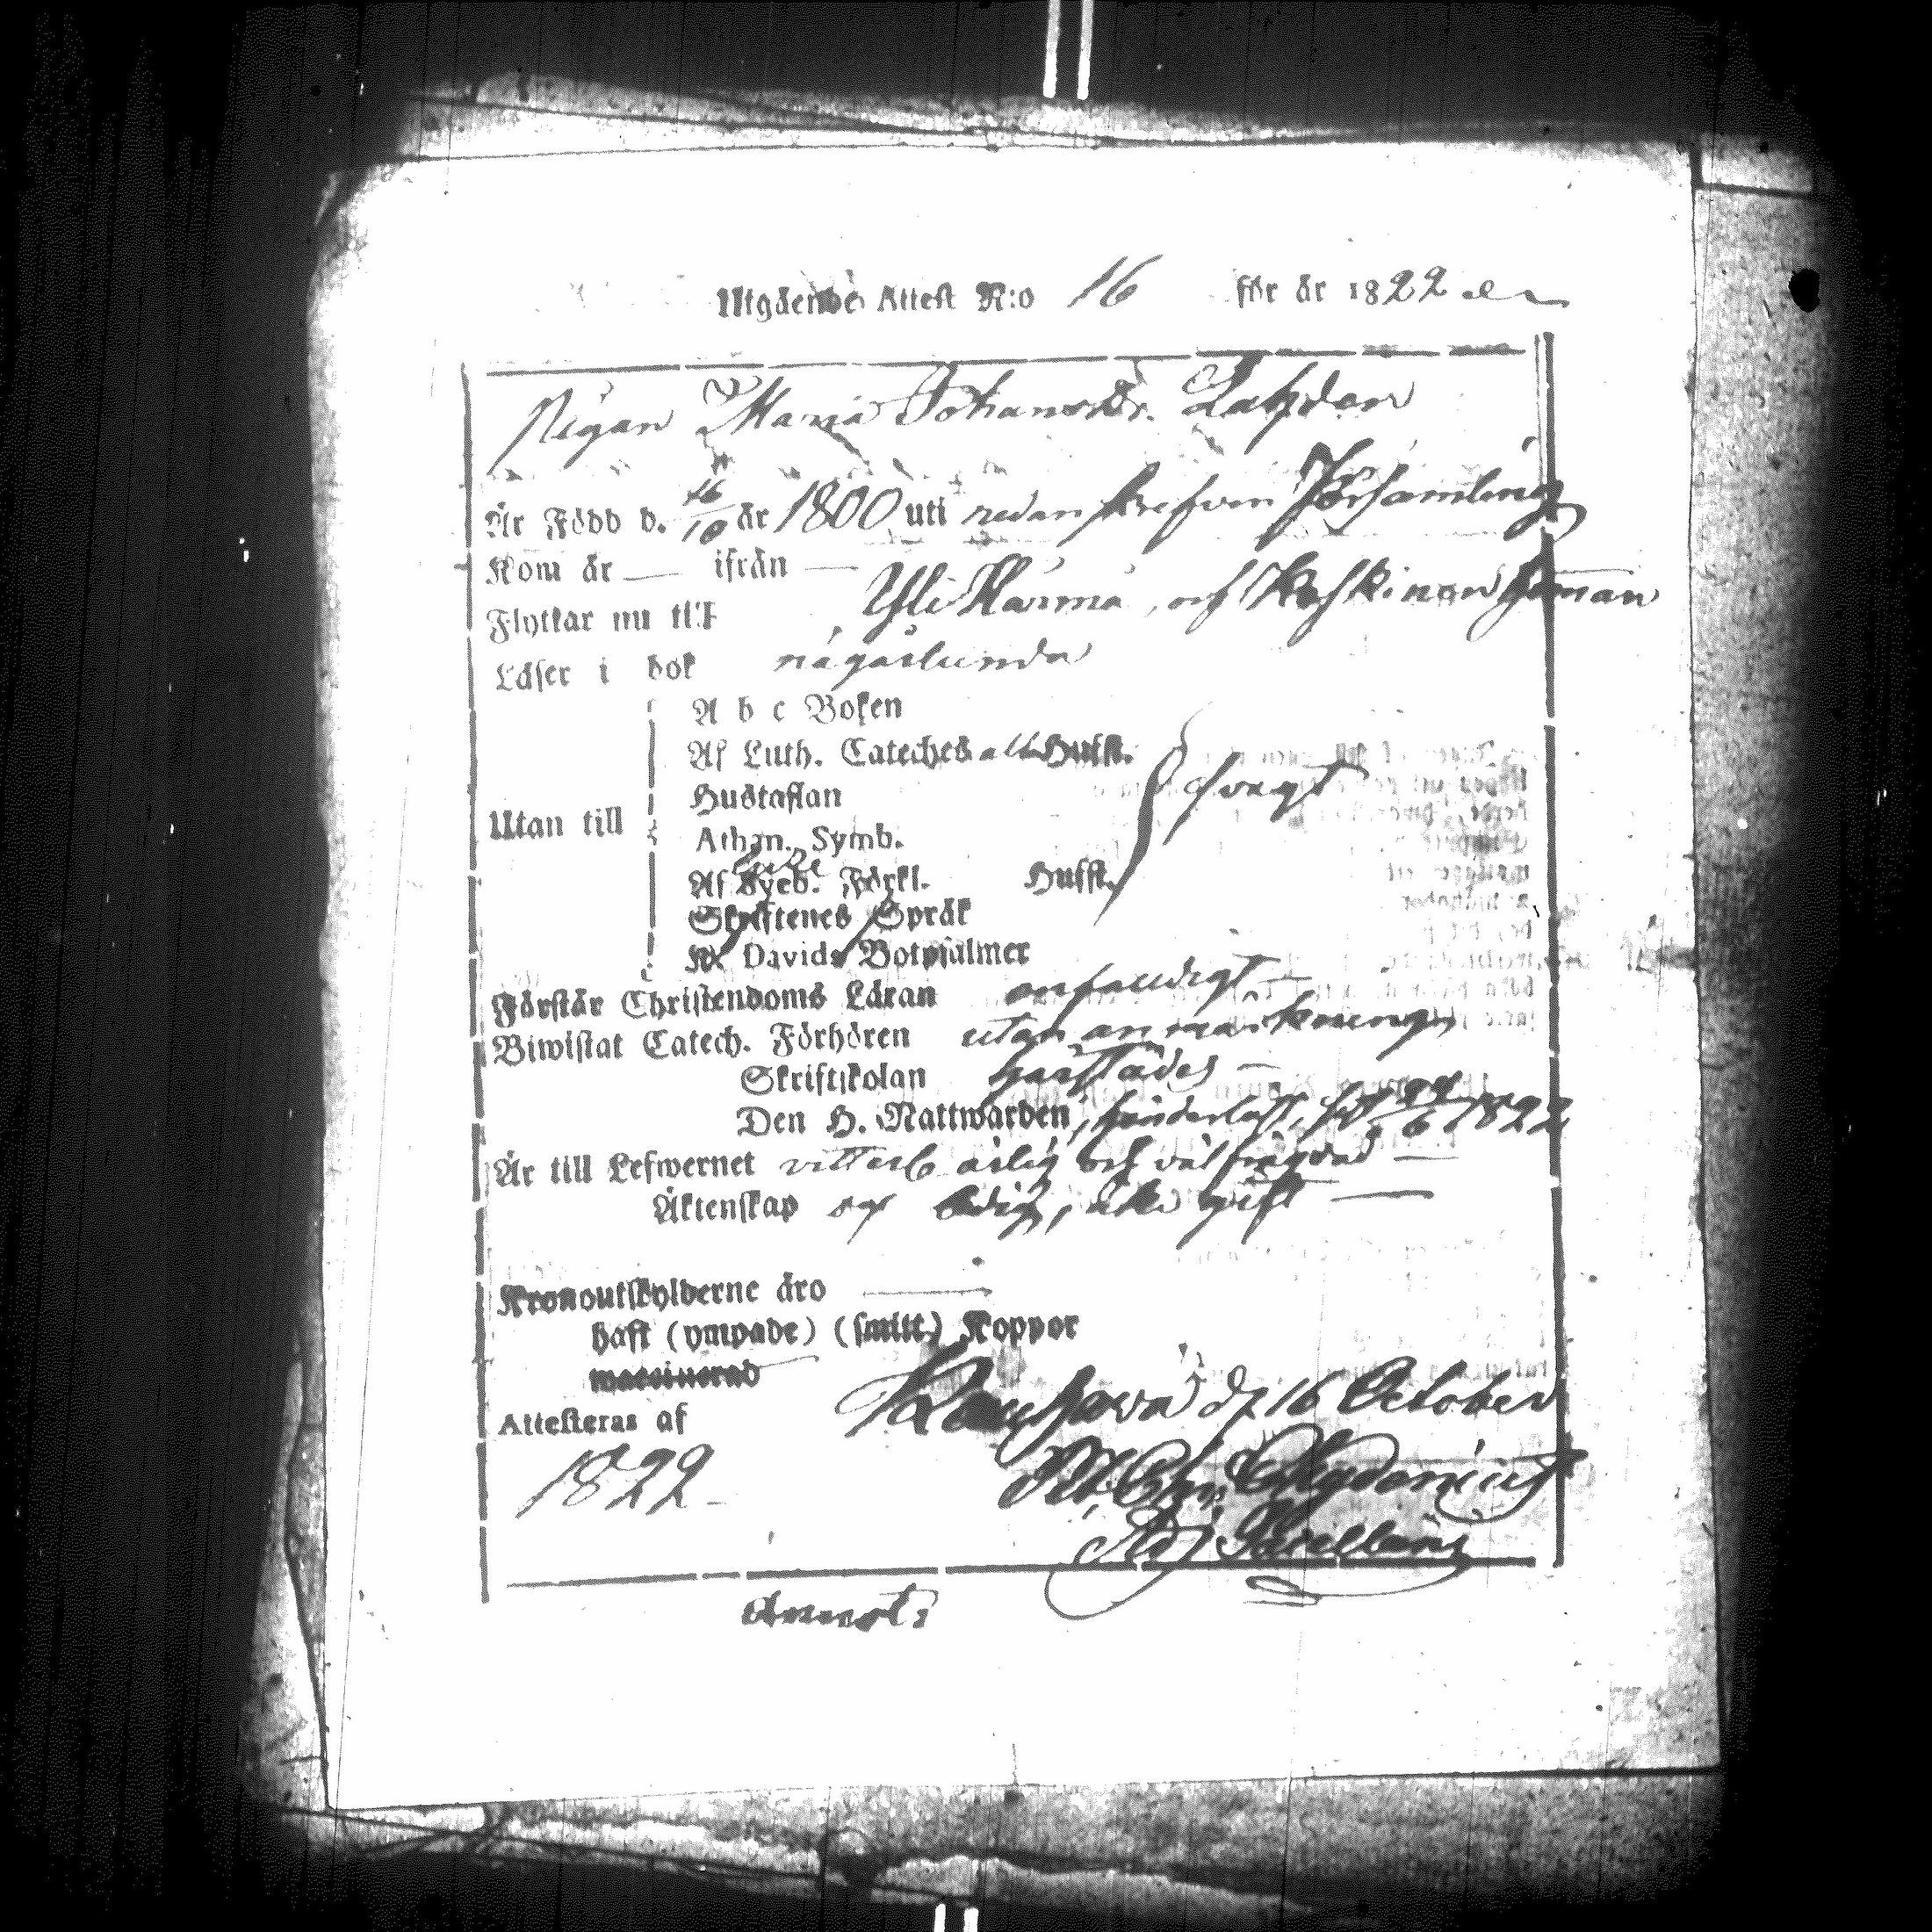 Utgående Attest N:o 16 för år 1822
Pigan Maria Johansdr. Lahden
Är Född d. 16/10 år 1800 uti nedanskrefven Församling
Kom år — ifrån —
Flyttar nu till Yli Härmä, och Koskinen hemman
Läser i bok någorlunda
A b c Boken
Af Luth. Cateches alla Hufst.
Hustaflan
svagt
Utan till
Athan. Symb.
Af Syeb. Förkl. Hufst.
Skriftenes Språk
K. Davids Botpsalmer
Förstår Christendoms Läran enfaldigt —
Biwistat Catech. Förhören utan anmärkning
Skriftskolan härstädes —
Den H. Nattwarden, sist 24/6 1822
Är till Lefwernet ärlig och väl frägdad —
Äktenskap ledig, icke gift —
Kronoutskylderne äro —
haft (ympade) (smitt.) Koppor
waccinerad
Attesteras af Kauhava d. 16 October
1822 Chydenius